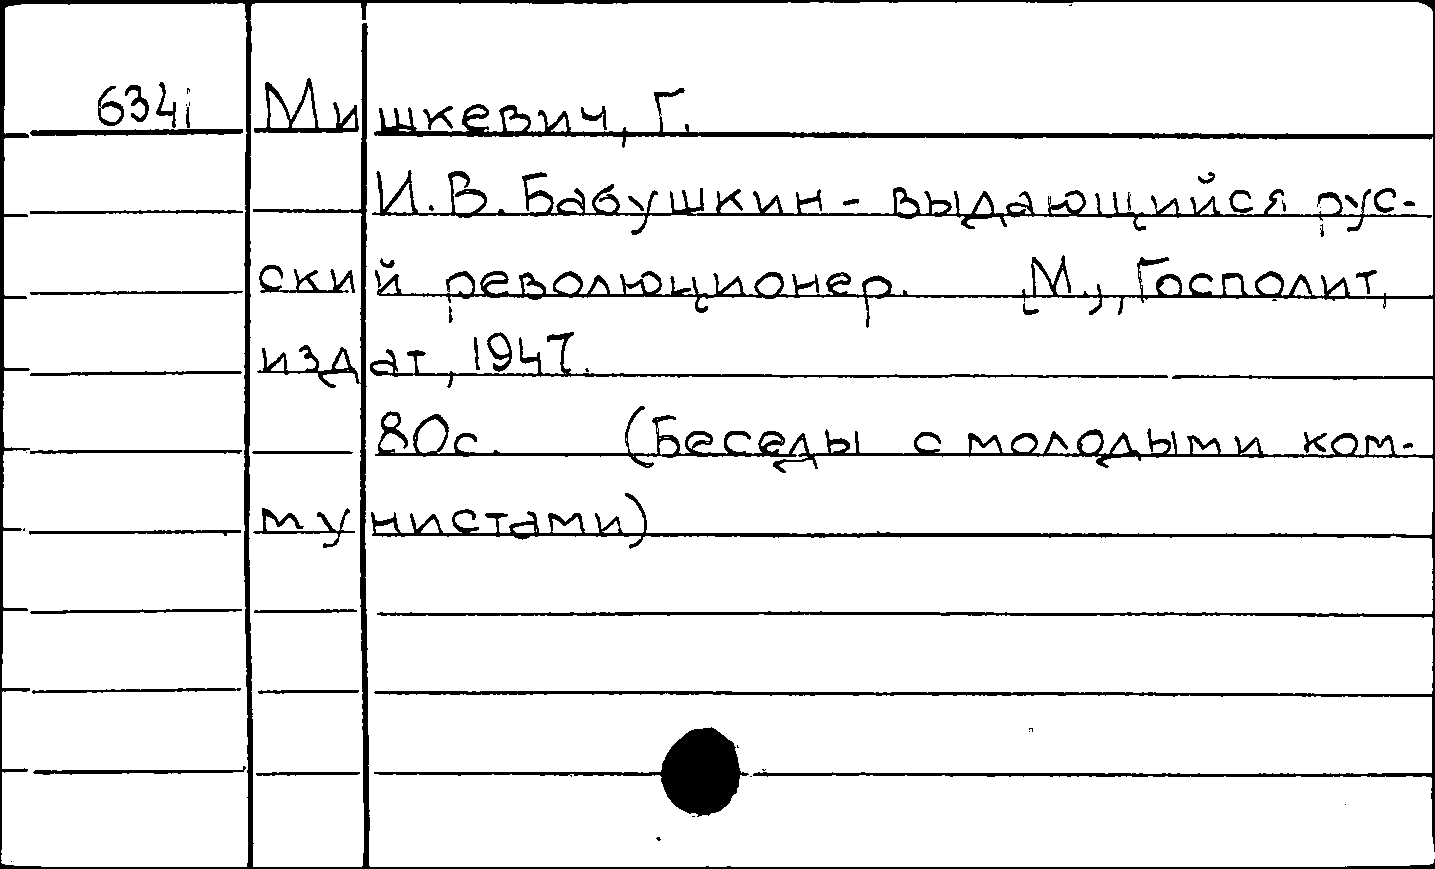 6341 Мишкевич, Г.
И.В. Бабушкин - выдающийся рус-
ский революционер. [М.], Госполит,
издат, 1947.
80с. (Беседы с молодыми ком-
мунистами)